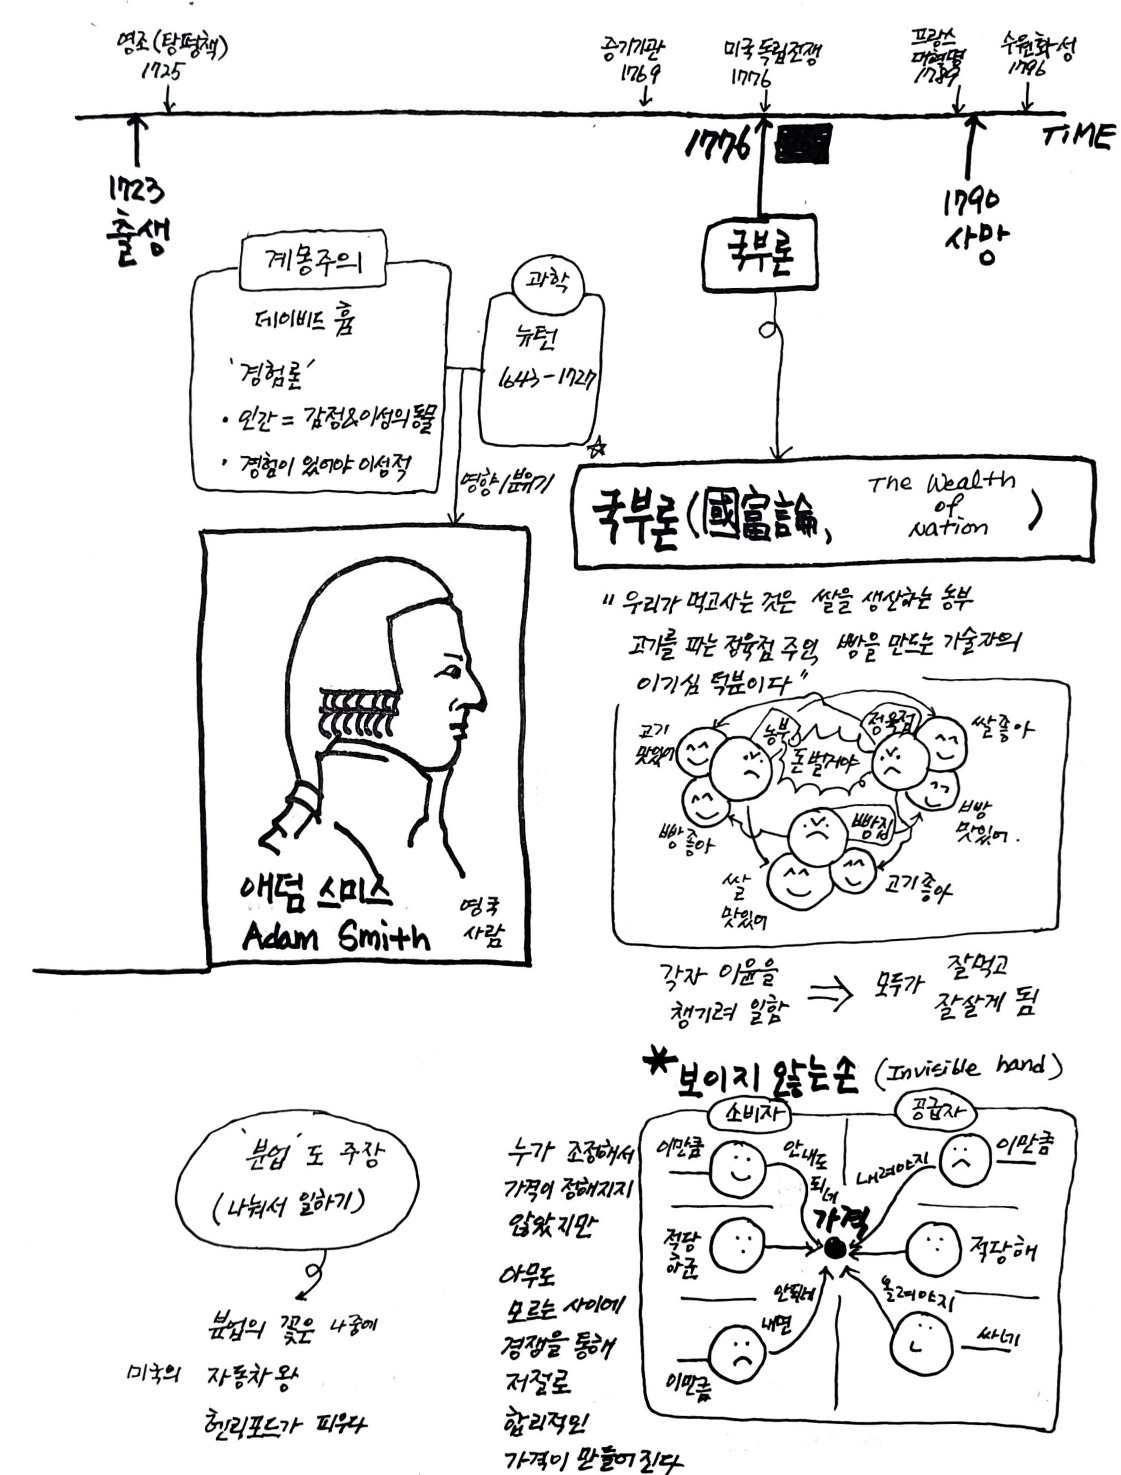 영조(탕평책)
1725
증기기관
1769
미국독립전쟁
1776
프랑스
대혁명
1789
수원화성
1796
TIME
1723
출생
1776
국부론
1790
사망
계몽주의
데이비드 흄
'경험론'
· 인간 = 감정&이성의 동물
· 경험이 있어야 이성적
과학
뉴턴
1643-1727
영향/분위기
국부론(國富論, The Wealth of Nation)
"우리가 먹고사는 것은 쌀을 생산하는 농부
고기를 파는 정육점 주인, 빵을 만드는 기술자의
이기심 덕분이다"
고기
맛있어
농부
돈벌거야
정육점
쌀좋아
빵좋아
빵집
빵
맛있어.
쌀
맛있어
고기좋아
각자 이윤을
챙기려 일함
⇒
모두가 잘먹고
잘살게 됨
애덤 스미스
Adam Smith
영국
사람
*보이지 않는 손 (Invisible hand)
소비자
공급자
이만큼
안내도
되네
내려야지
이만큼
가격
적당
하군
적당해
안되네
내면
올려야지
싸네
이만큼
누가 조정해서
가격이 정해지지
않았지만
아무도
모르는 사이에
경쟁을 통해
저절로
합리적인
가격이 만들어진다
'분업'도 주장
(나눠서 일하기)
분업의 꽃은 나중에
미국의 자동차왕
헨리포드가 피우다